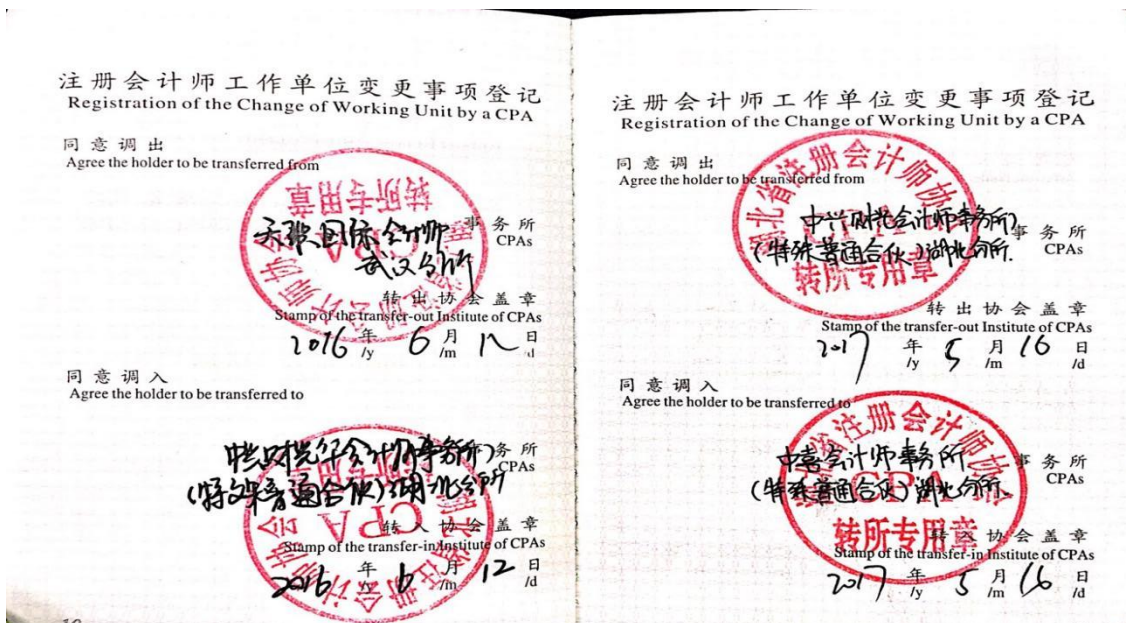 注册会计师工作单位变更事项登记
Registration of the Change of Working Unit by a CPA
同意调出
Agree the holder to be transferred from
转所专用章
国际会计师
事务所
CPAs
武汉分所
转出协会盖章
Stamp of the transfer-out Institute of CPAs
2016 年 6 月 12 日
/y /m /d
同意调入
Agree the holder to be transferred to
会计师事务所)
事务所
CPAs
(特殊普通合伙)湖北分所
CPA
转入协会盖章
Stamp of the transfer-in Institute of CPAs
2016 年 6 月 12 日
/y /m /d
注册会计师工作单位变更事项登记
Registration of the Change of Working Unit by a CPA
同意调出
Agree the holder to be transferred from
湖北省注册会计师协会
中兴财光会计师事务所)
事务所
CPAs
(特殊普通合伙)湖北分所.
转所专用章
转出协会盖章
Stamp of the transfer-out Institute of CPAs
2017 年 5 月 16 日
/y /m /d
同意调入
Agree the holder to be transferred to
湖北省注册会计师协会
中喜会计师事务所
事务所
CPAs
(特殊普通合伙)湖北分所.
转所专用章
转入协会盖章
Stamp of the transfer-in Institute of CPAs
2017 年 5 月 16 日
/y /m /d